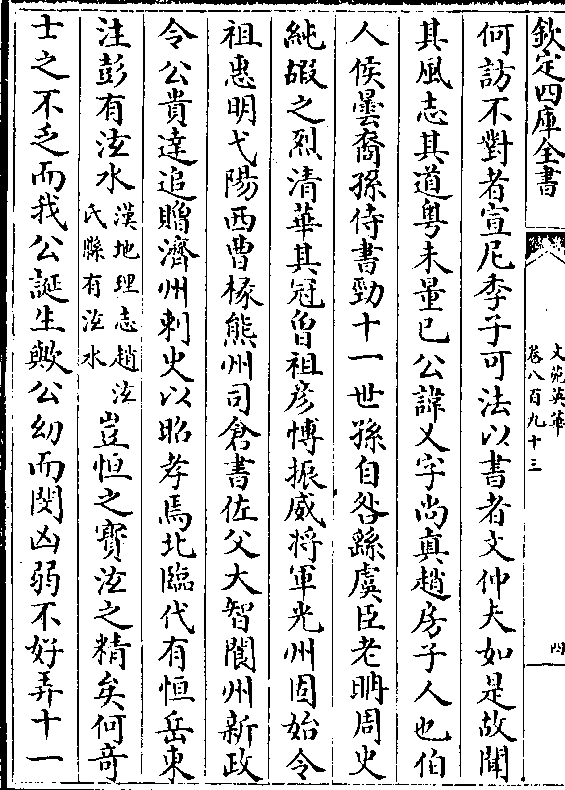 欽定四庫全書
文苑英華
卷八百九十三
四
何訪不對者宣尼季子可法以書者文仲夫如是故聞
其風志其道粤未量已公諱乂字尚真趙房子人也伯
人侯曇裔孫侍書勁十一世孫自咎繇虞臣老聃周史
純嘏之烈清華其冠曾祖彦愽振威将軍光州固始令
祖惠明弋陽西曹掾熊州司倉書佐父大智閬州新政
令公貴逹追贈濟州刺史以昭孝焉北臨代有恒岳東
注彭有泫水漢地理志趙泫氏縣有泫水豈恒之寶泫之精矣何奇
士之不乏而我公誕生歟公幼而閔凶弱不好弄十一